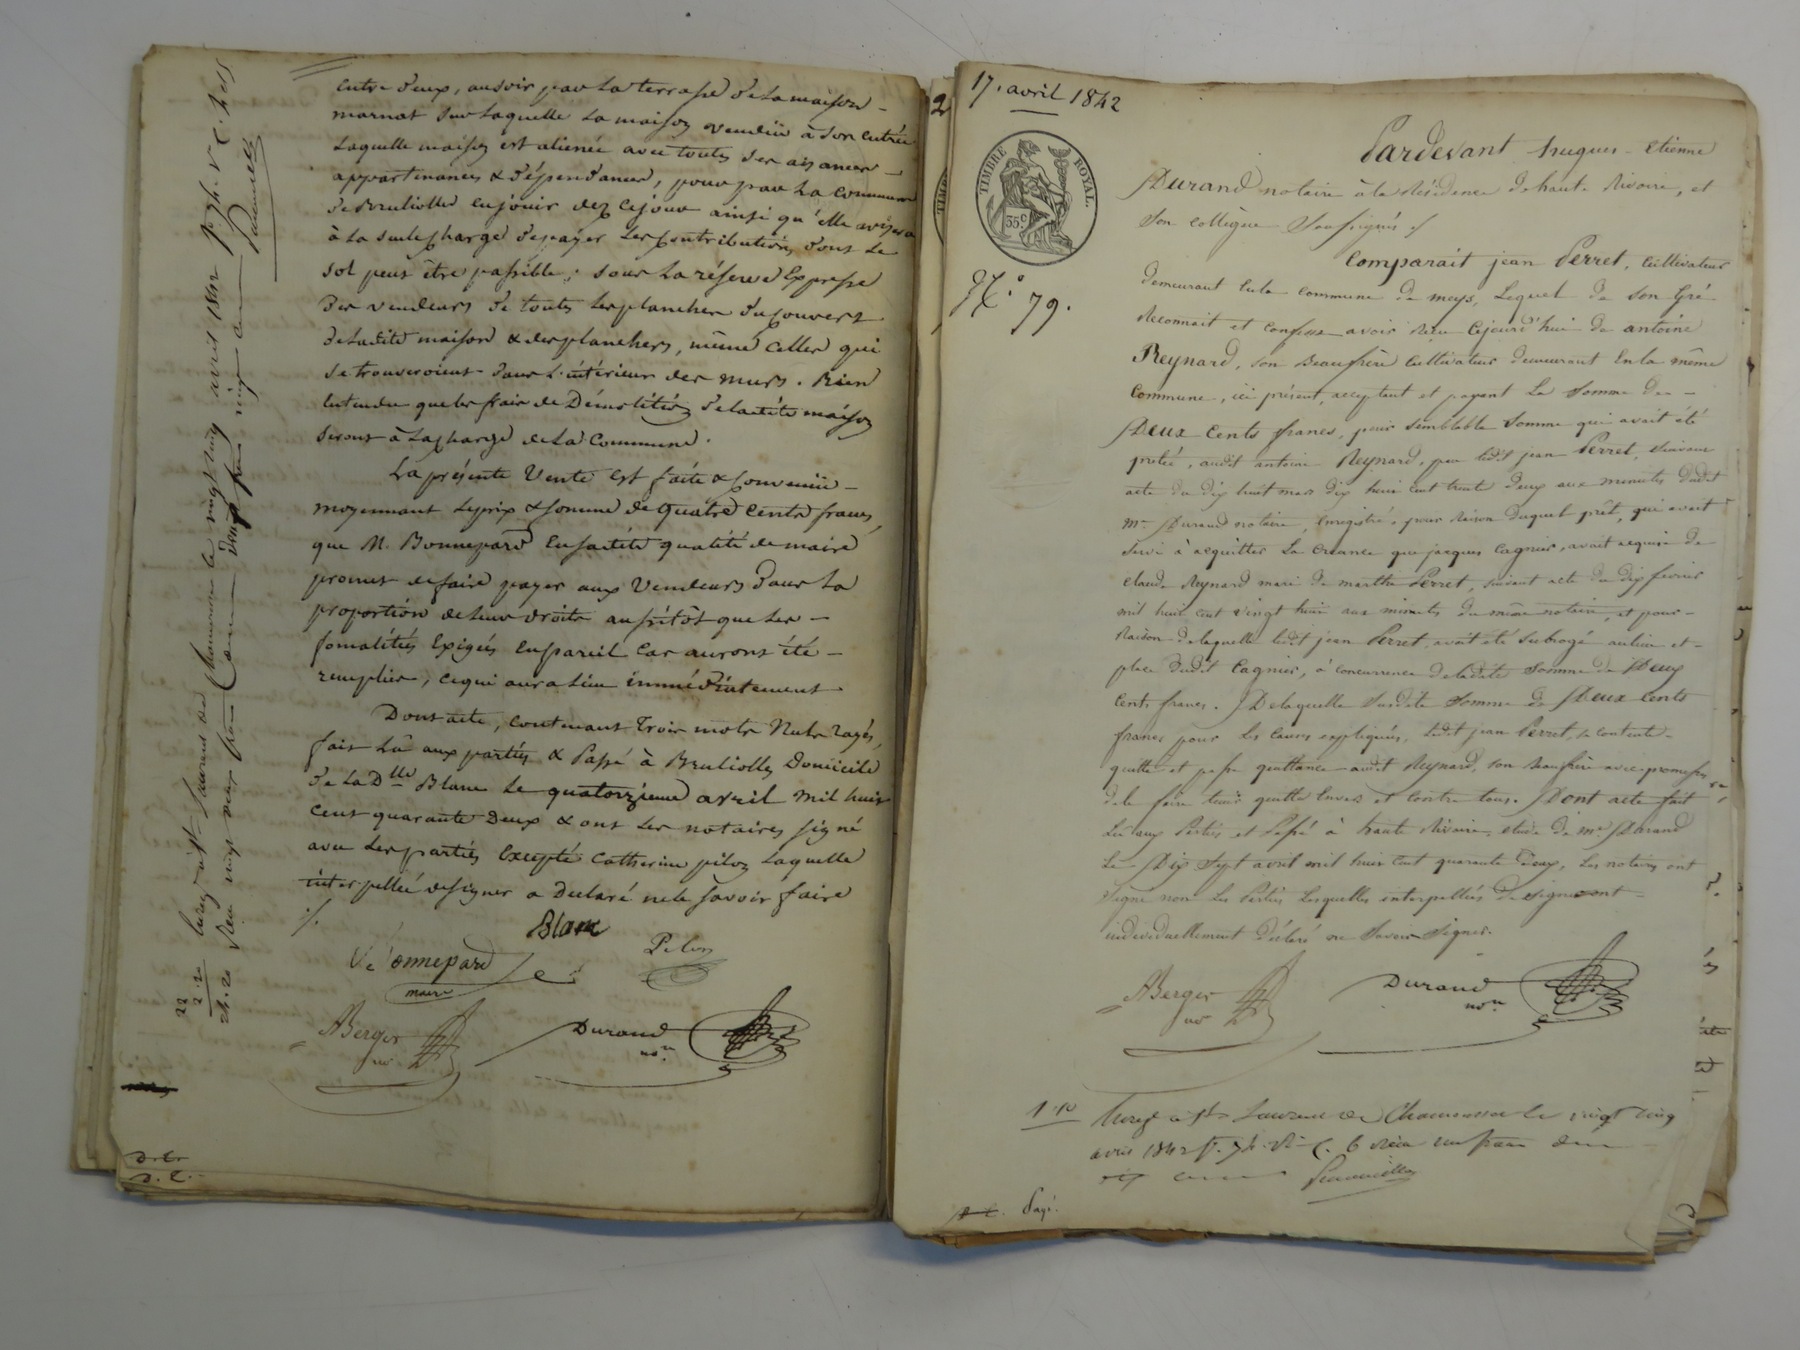 entre d'eux, au soir par la terrasse de la maison
marnat sur laquelle la maison vendüe à son entrée
Laquelle maison est alienée avec toutes ses aisances
appartenances & dépendances, pour par la Commune
de Brulioles en jouir dez ce jour ainsi qu'elle avisera
à la seule charge de payer les Contributions dont le
sol peut être passible; sous la réserve Expresse
des vendeurs de toutes les planches du couvert
de ladite maison & des planchers, même celles qui
se trouveroient dans l'intérieur des murs. Bien
entendu que les frais de Démolition de ladite maison
seront à la charge de la Commune.
La présente Vente est faite & Convenüe
moyennant le prix & somme de quatre cents francs,
que M. Bonnepard en sadite qualité de maire
promet de faire payer aux Vendeurs dans la
proportion de leurs droits aussitôt que les
fomalités Exigées en pareil Cas auront été
remplies, ce qui aura lieu immédiatement
Dont acte, contenant Trois mots Nuls rayés,
fait Lû aux parties & Passé à Brulioles Domicile
de La Dlle Blanc le quatorzième avril mil huit
cent quarante Deux & ont les notaires signé
avec les parties Excepté Catherine pilon Laquelle
interpellée de signer a Declaré ne le savoir faire
./.
Blanc
Bonnepard
maire
Pilon
ABerger
nre
Durand
nore
22
2.20
24.20
Enregé à St Laurent de Chamousset le vingt cinq avril 1842
Reçu vingt deux francs
17. avril 1842
TIMBRE ROYAL.
35c
No. 79.
Pardevant hugues-Etienne
Durand notaire à la Résidence de haute Rivoire, et
son collègue Soussignés ./
Comparait jean Perret, Cultivateur
demeurant en la commune de meys, Lequel de son Gré
Reconnait et confesse avoir Reçu Cejourd'hui de antoine
Reynard, son Beaufrère Cultivateur demeurant En la même
Commune, ici présent, acceptant et payant La Somme de
Deux Cents francs, pour semblable somme qui avait été
pretée, audit antoine Reynard, par ledit jean Perret, suivant
acte du dix huit mars dix huit cent trente deux aux minutes dudit
me. Durand notaire, Enregistré, pour Raison duquel prêt, qui avait
servi à acquitter La Créance que jacques Cagnier, avait acquise de
claude Reynard mari de marthe Perret, suivant acte du dix fevrier
mil huit cent vingt huit aux minutes du même notaire, et pour
Raison de laquelle ledit jean Perret, avait été subrogé au lieu et
place dudit Cagnier, à concurrence de ladite Somme de Deux
Cents francs. De laquelle susdite somme de Deux Cents
francs pour les causes expliquées, ledit jean Perret, se contente
quitte et passe quittance audit Reynard, son Beaufrère avec promesse
de le faire tenir quitte Envers et Contre tous. Dont acte fait
Lu aux Parties et Passé à haute Rivoire, etude de me. Durand
Le Dix Sept avril mil huit cent quarante deux, Les notaires ont
signé non Les Parties Lesquelles interpellées de signer ont
individuellement déclaré ne Savoir Signer.
ABerger
nre
Durand
nore
1.10
Enregé à St Laurent de Chamousset le vingt cinq
avril 1842 fo. 74. Vo C. 6 Reçu un franc
dix centimes
Payé.